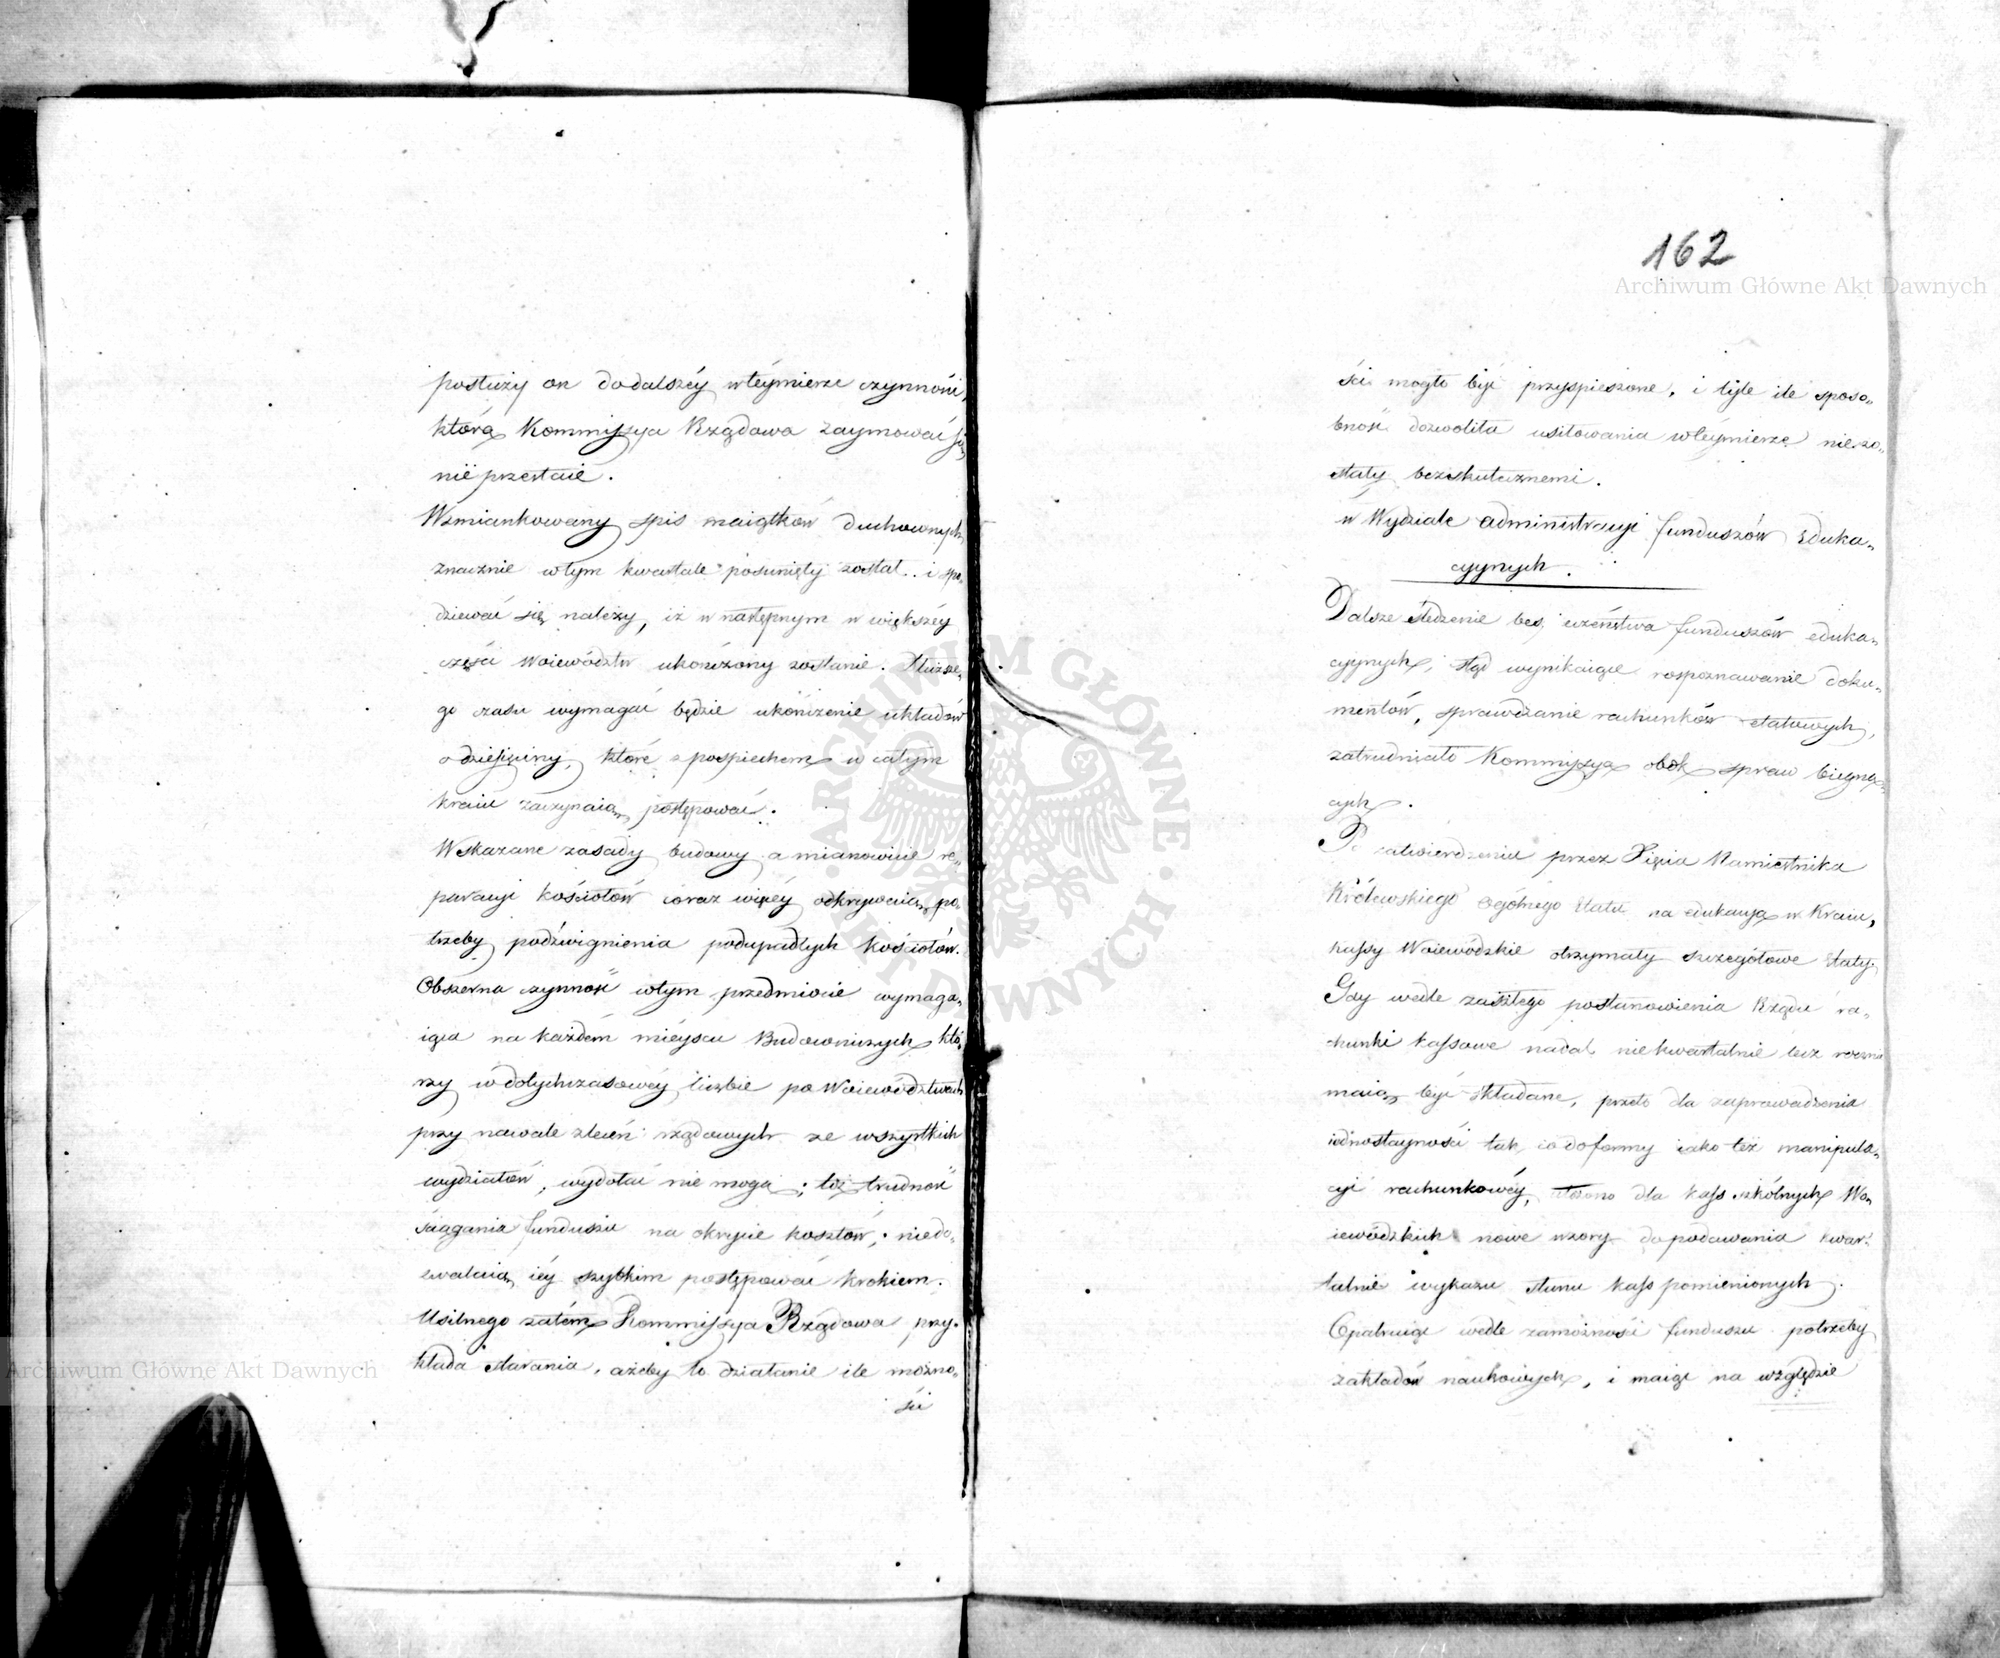 posłuży on do dalszéy w téymierze czynności,
którą Kommissya Rządowa zaymować się
nie przestaie.
Wzmiankowany spis maiątków duchownych
znacznie w tym kwartale posunięty został.. i spo„
dziewać się należy, iż w następnym w większéy
części Woiewództw ukończony zostanie. Dłuższe„
go czasu wymagać będzie ukończenie układów
o dziesięciny, które z pospiechem w całym
kraiu zaczynaią postępować.
Wskazane zasady budowy a mianowicie re„
paracyi kościołów coraz więcéy odkrywaią po„
trzeby podźwignienia podupadłych kościołów.
Obszerna czynność w tym przedmiocie wymaga„
iąca na każdém mieyscu Budowniczych, któ„
rzy w dotychczasowéy liczbie po Woiewództwach
przy nawale zleceń rządowych ze wszystkich
wydziałów, wydołać nie mogą; toż trudność
ściągania funduszu na okrycie kosztów, niedo„
zwalaią iéy szybkim postępować krokiem.
Usilnego zatém Kommissya Rządowa przy„
kłada starania, ażeby to działanie ile możno„
ści
162
Archiwum Główne Akt Dawnych
ści mogło być przyspieszone, i tyle ile sposo„
bność dozwoliła usiłowania w téymierze niezo„
stały bezskutecznemi.
w Wydziale administracyi funduszów Eduka„
cyynych.
Dalsze śledzenie bezpieczeństwa funduszów eduka„
cyynych, stąd wynikaiące rozpoznawanie doku„
mentów, sprawdzanie rachunków etatowych,
zatrudniało Kommissyą obok spraw bieżą„
cych.
Po zatwierdzeniu przez Xięcia Namiestnika
Królewskiego ogólnego Etatu na edukacyą w Kraiu,
kassy Woiewódzkie otrzymały szczegółowe Etaty.
Gdy wedle zaszłego postanowienia Rządu ra„
chunki kassowe nadal nie kwartalnie lecz roczne
maią być składane, przeto dla zaprowadzenia
iednostayności tak co do formy iako też manipula„
cyi rachunkowéy, ułożono dla kass szkólnych Wo„
iewódzkich nowe wzory do podawania kwar„
talnie wykazu stanu kass pomienionych.
Opatruiąc wedle zamożności funduszu potrzeby
zakładów naukowych, i maiąc na względzie
Archiwum Główne Akt Dawnych
ARCHIWUM GŁÓWNE AKT DAWNYCH